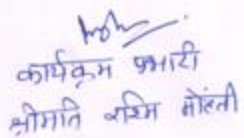 कार्यक्रम प्रभारी
श्रीमति रश्मि मोहंती